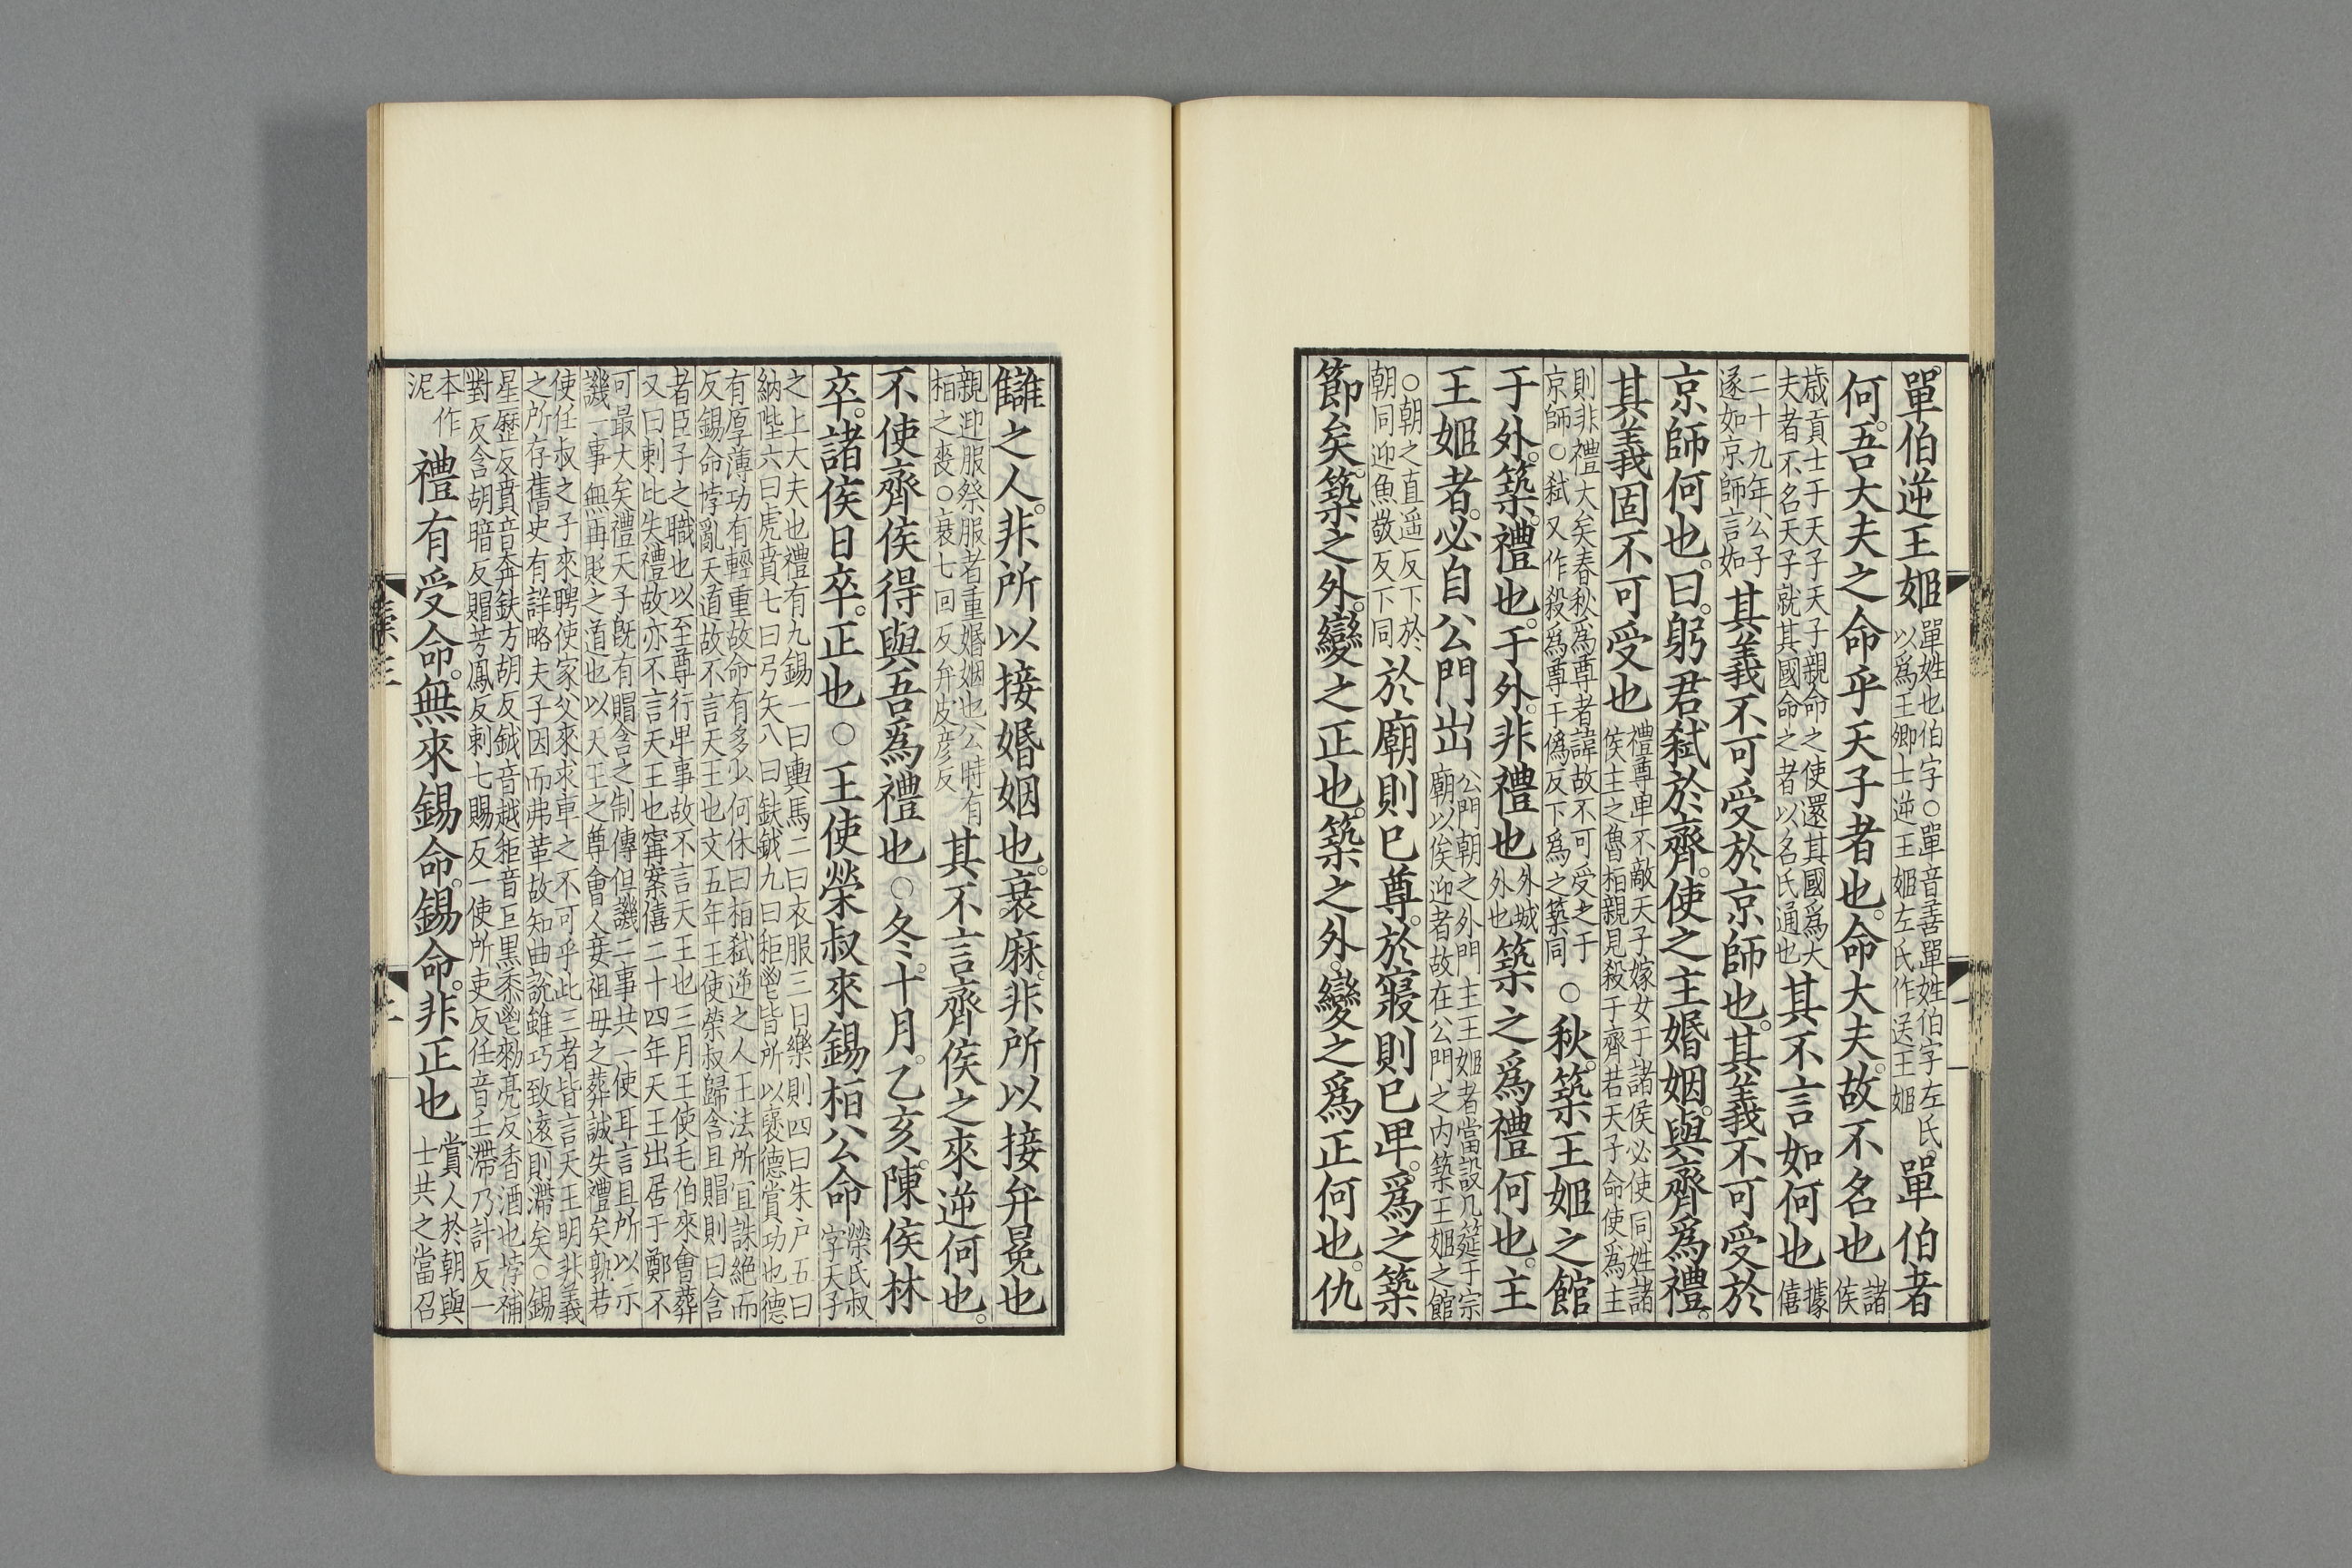 單伯逆王姬單姓也伯字○單音善單姓伯字左氏以爲王卿士逆王姬左氏作送王姬單伯者
何吾大夫之命乎天子者也命大夫故不名也諸侯
歲貢士于天子天子親命之使還其國爲大夫者不名天子就其國命之者以名氏通也其不言如何也據僖
二十九年公子遂如京師言如其義不可受於京師也其義不可受於
京師何也曰躬君弑於齊使之主婚姻與齊爲禮
其義固不可受也禮尊卑不敵天子嫁女于諸侯必使同姓諸侯主之魯桓親見殺于齊若天子命使爲主
則非禮大矣春秋爲尊者諱故不可受之于京師○弑又作殺爲尊于僞反下爲之築同○秋築王姬之館
于外築禮也于外非禮也外城外也築之爲禮何也主
王姬者必自公門出公門朝之外門主王姬者當設几筵于宗廟以俟迎者故在公門之內築王姬之館
○朝之直遥反下於朝同迎魚敬反下同於廟則已尊於寢則已卑爲之築
節矣築之外變之正也築之外變之爲正何也仇
讎之人非所以接婚姻也衰麻非所以接弁冕也
親迎服祭服者重婚姻也公時有桓之喪○衰七回反弁皮彦反其不言齊侯之來逆何也
不使齊侯得與吾爲禮也○冬十月乙亥陳侯林
卒諸侯日卒正也○王使榮叔來錫桓公命榮氏叔字天子
之上大夫也禮有九錫一曰輿馬二曰衣服三曰樂則四曰朱户五曰納陛六曰虎賁七曰弓矢八曰鈇鉞九曰秬鬯皆所以褒德賞功也德
有厚薄功有輕重故命有多少何休曰桓弑逆之人王法所宜誅絶而反錫命悖亂天道故不言天王也文五年王使榮叔歸含且賵則曰含
者臣子之職也以至尊行卑事故不言天王也三月王使毛伯來會葬又曰刺比失禮故亦不言天王也甯案僖二十四年天王出居于鄭不
可最大矣禮天子旣有賵含之制傳但譏二事共一使耳言且所以示譏一事無再貶之道也以天王之尊會人妾祖母之葬誠失禮矣孰若
使任叔之子來聘使家父來求車之不可乎此三者皆言天王明非義之所存舊史有詳略夫子因而弗革故知曲說雖巧致遠則滯矣○錫
星歷反賁音奔鈇方胡反鉞音越秬音巨黑黍鬯勑亮反香酒也悖補對反含胡暗反賵芳鳳反刺七賜反一使所吏反任音壬滯乃計反一
本作泥禮有受命無來錫命錫命非正也賞人於朝與士共之當召